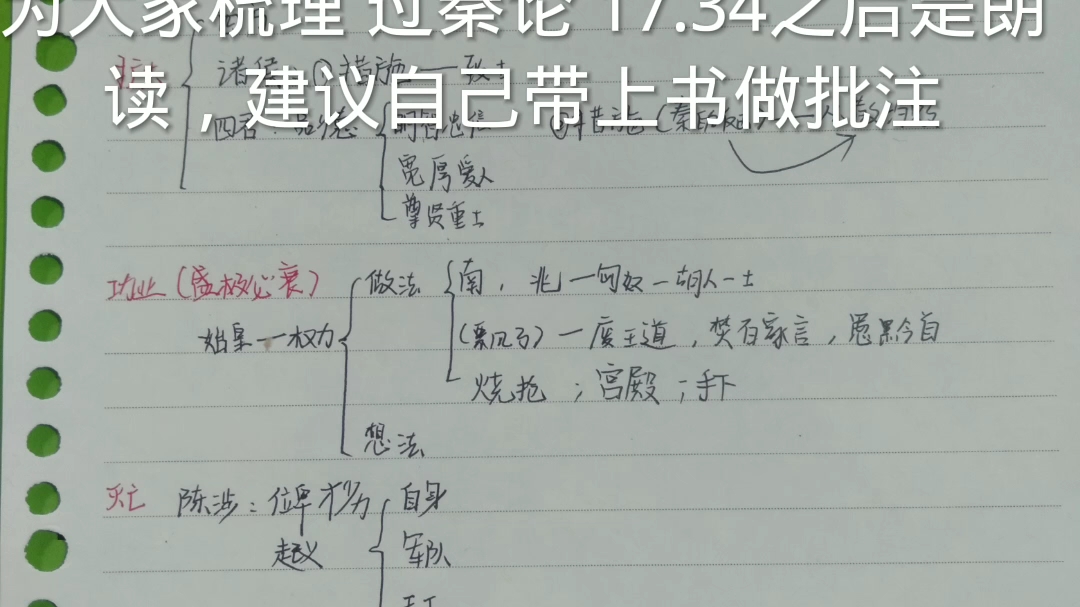 为大家梳理 过秦论 17.34之后是朗
读，建议自己带上书做批注
诸侯：①措施——致士
四君：品德
明智忠信
宽厚爱人
尊贤重士
功业（盛极必衰）
做法
南，北—匈奴—胡人—士
始皇—权力
—废王道，焚百家言，愚黔首
烧抢；宫殿；手下
想法
灭亡 陈涉：位卑才劣
自身
起义
军队